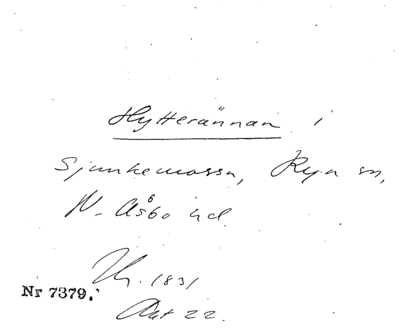 Hytterännan i
Sjunkemossa, Rya sn,
N. Åsbo hd.
Nr 7379.
1831
Akt 22.